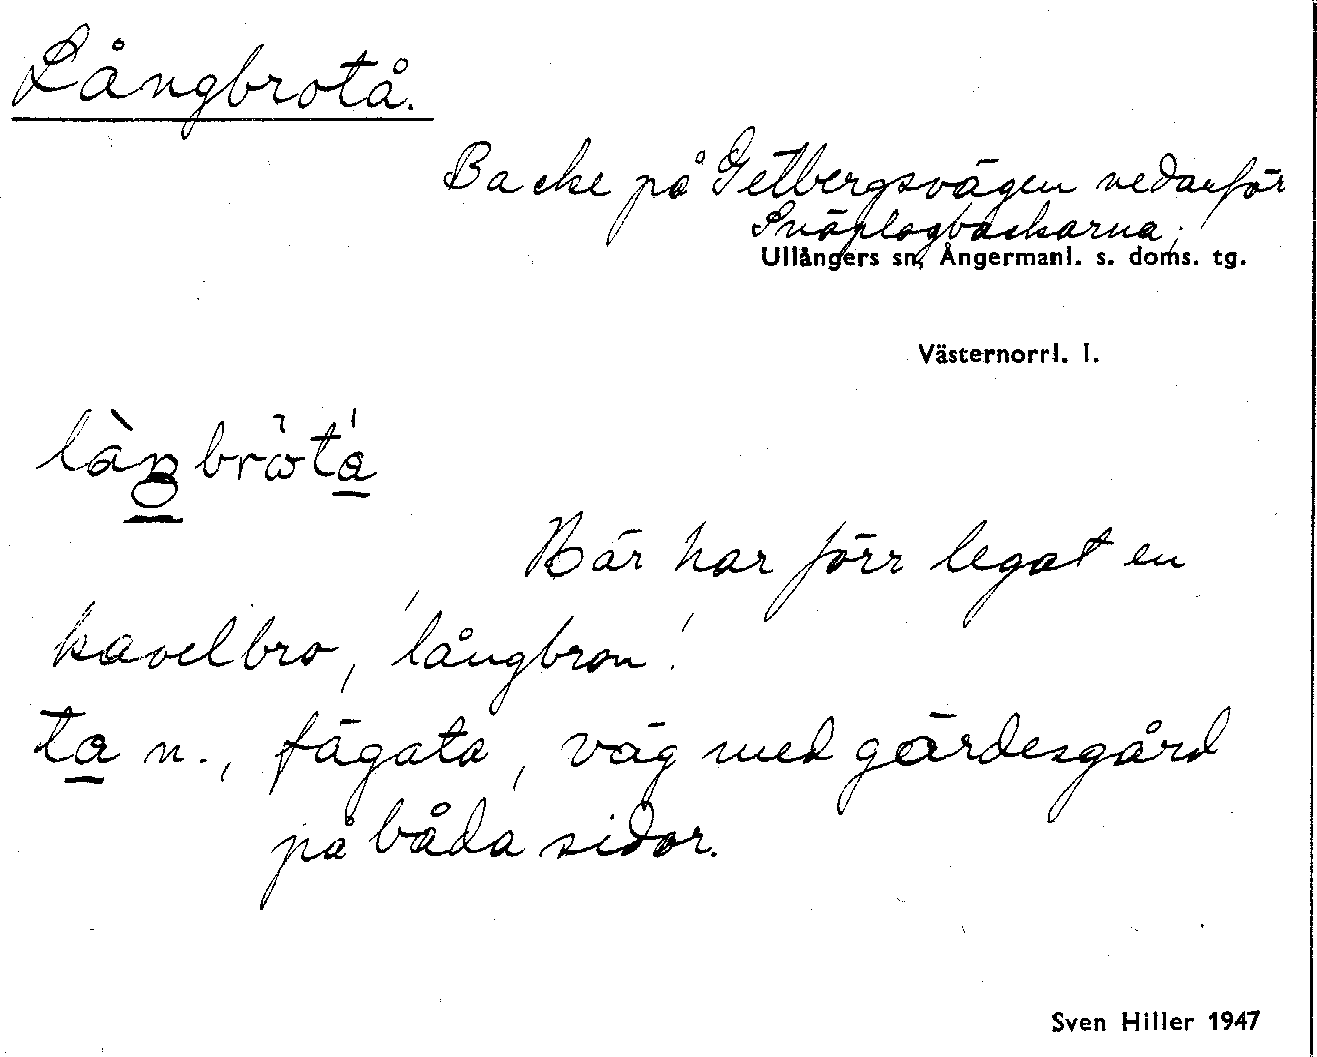 Långbrotå.
Backe på Getbergsvägen nedanför
Snöplogbackarna,
Ullångers sn, Ångermanl. s. doms. tg.
Västernorrl. l.
Här har förr legat en
kavelbro, 'långbron'.
ta n., fägata, väg med gärdesgård
på båda sidor.
Sven Hiller 1947